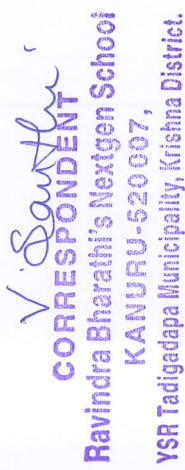 V. Santhi
CORRESPONDENT
Ravindra Bharathi's Nextgen School
KANURU-520007,
YSR Tadigadapa Municipality, Krishna District.